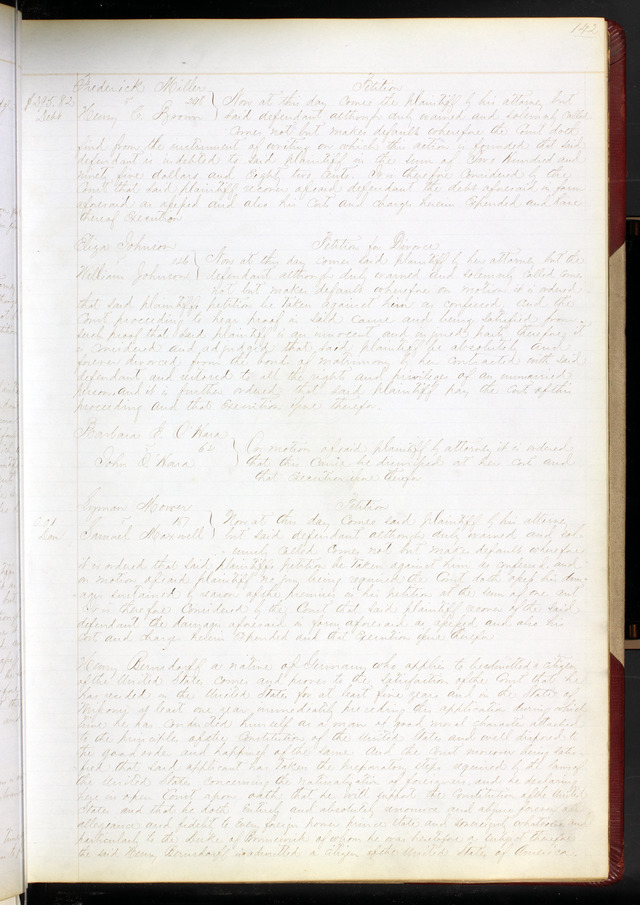 142
Frederick Miller Petition
$295.82 vs 248 Now at this day comes the plaintiff by his attorney but
Debt Henry C. Broown said defendant although duly warned and solemnly called
comes not but makes default wherefore the Court doth
find from the instrument of writing on which this action is founded that said
defendant is indebted to said plaintiff in the sum of Two Hundred and
ninety five dollars and Eighty two cents. It is therefore Considered by the
Court that said plaintiff recover of said defendant the debt aforesaid in form
aforesaid as assessed and also his Cost and charges herein Expended and have
thereof Execution
Eliza Johnson Petition for Divorce
vs Now at this day comes said plaintiff by her attorney but the
William Johnson defendant although duly warned and solemnly called comes
not but makes default wherefore on motion it is ordered
that said plaintiffs petition be taken against him as confessed and the
Court proceeding to hear proof in said cause and being satisfied from
such proof that said plaintiff is an innocent and injured party therefore it
is considered and adjudged that said plaintiff be absolutely and
forever divorced from the bonds of matrimony by her contracted with said
defendant and restored to all the rights and privileges of an unmarried
person and it is further ordered that said plaintiff pay the Cost of this
proceeding and that Execution issue therefor.
Barbara E. O'Hara
vs 62 On motion of said plaintiff by attorney it is ordered
John O'Hara that this Cause be dismissed at her Cost and
that Execution issue therefor
Lyman Mower Petition
vs 187 Now at this day comes said plaintiff by his attorney
Dam Samuel Maxwell but said defendant although duly warned and sol-
emnly called comes not but makes default wherefore
it is ordered that said plaintiffs petition be taken against him as confessed and
on motion of said plaintiff no jury being required the Court doth assess his dam-
ages sustained by reason of the premises in his petition at the sum of one cent
It is therefore Considered by the Court that said plaintiff recover of the said
defendant the damages aforesaid in form aforesaid as assessed and also his
Cost and charges herein Expended and that Execution issue therefor
Henry Bernsdorff a native of Germany who applies to be admitted a citizen
of the United States comes and proves to the satisfaction of the Court that he
has resided in the United States for at least five years and in the State of
Missouri at least one year immediately preceding this application during which
time he has conducted himself as a man of good moral character attached
to the principles of the Constitution of the United States and well disposed to
the good order and happiness of the same And the Court moreover being satis-
fied that said applicant has taken the preparatory steps required by the laws of
the United States concerning the naturalization of foreigners and he declaring
here in open Court upon oath that he will support the Constitution of the United
States and that he doth entirely and absolutely renounce and abjure forever all
allegiance and fidelity to every foreign power prince state and sovereignty whatsoever and
particularly to the Duke of Brunswick of whom he was heretofore a subject therefore
the said Henry Bernsdorff is admitted a Citizen of the United States of America.